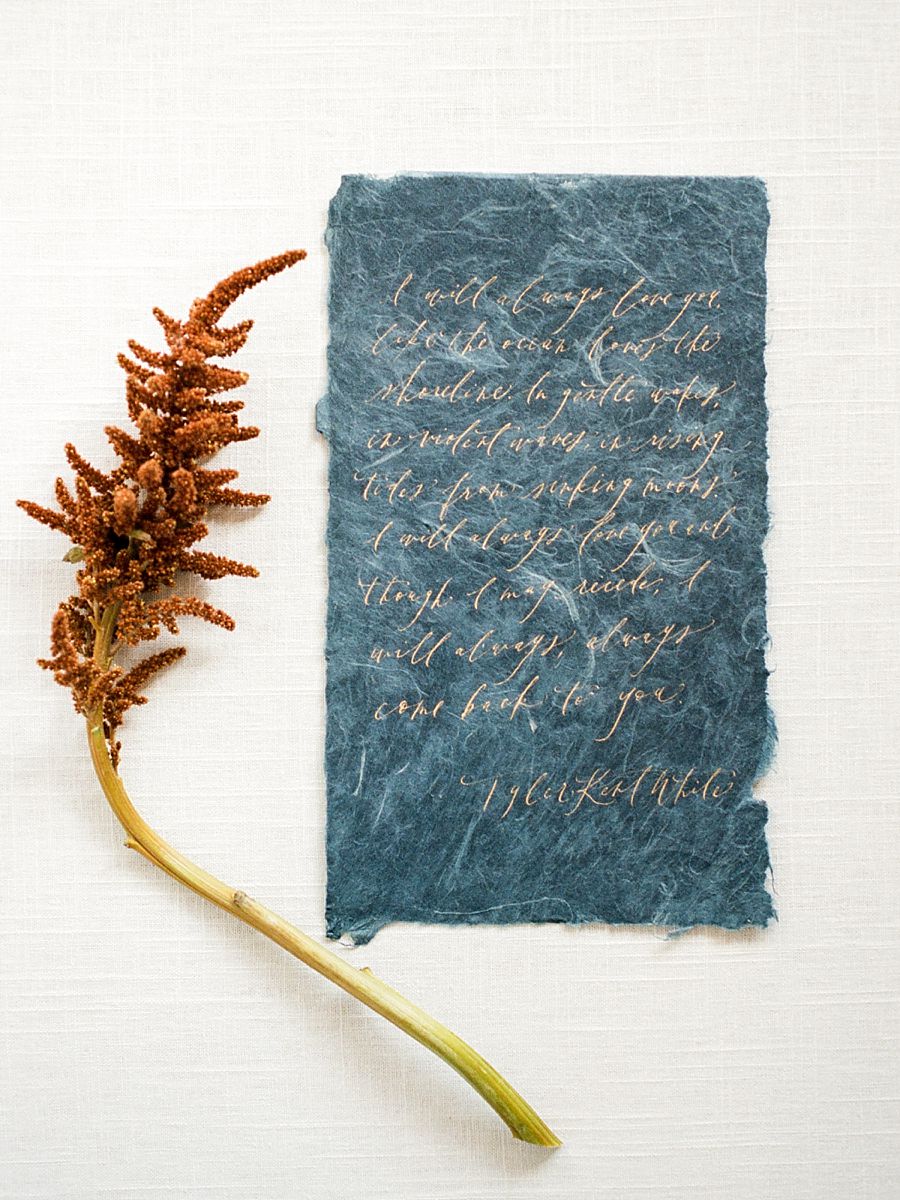 I will always love you,
like the ocean loves the
shoreline. In gentle wakes,
in violent waves, in rising
tides from sinking moons.
I will always love you and
though I may recede, I
will always, always
come back to you.
Tyler Kent White